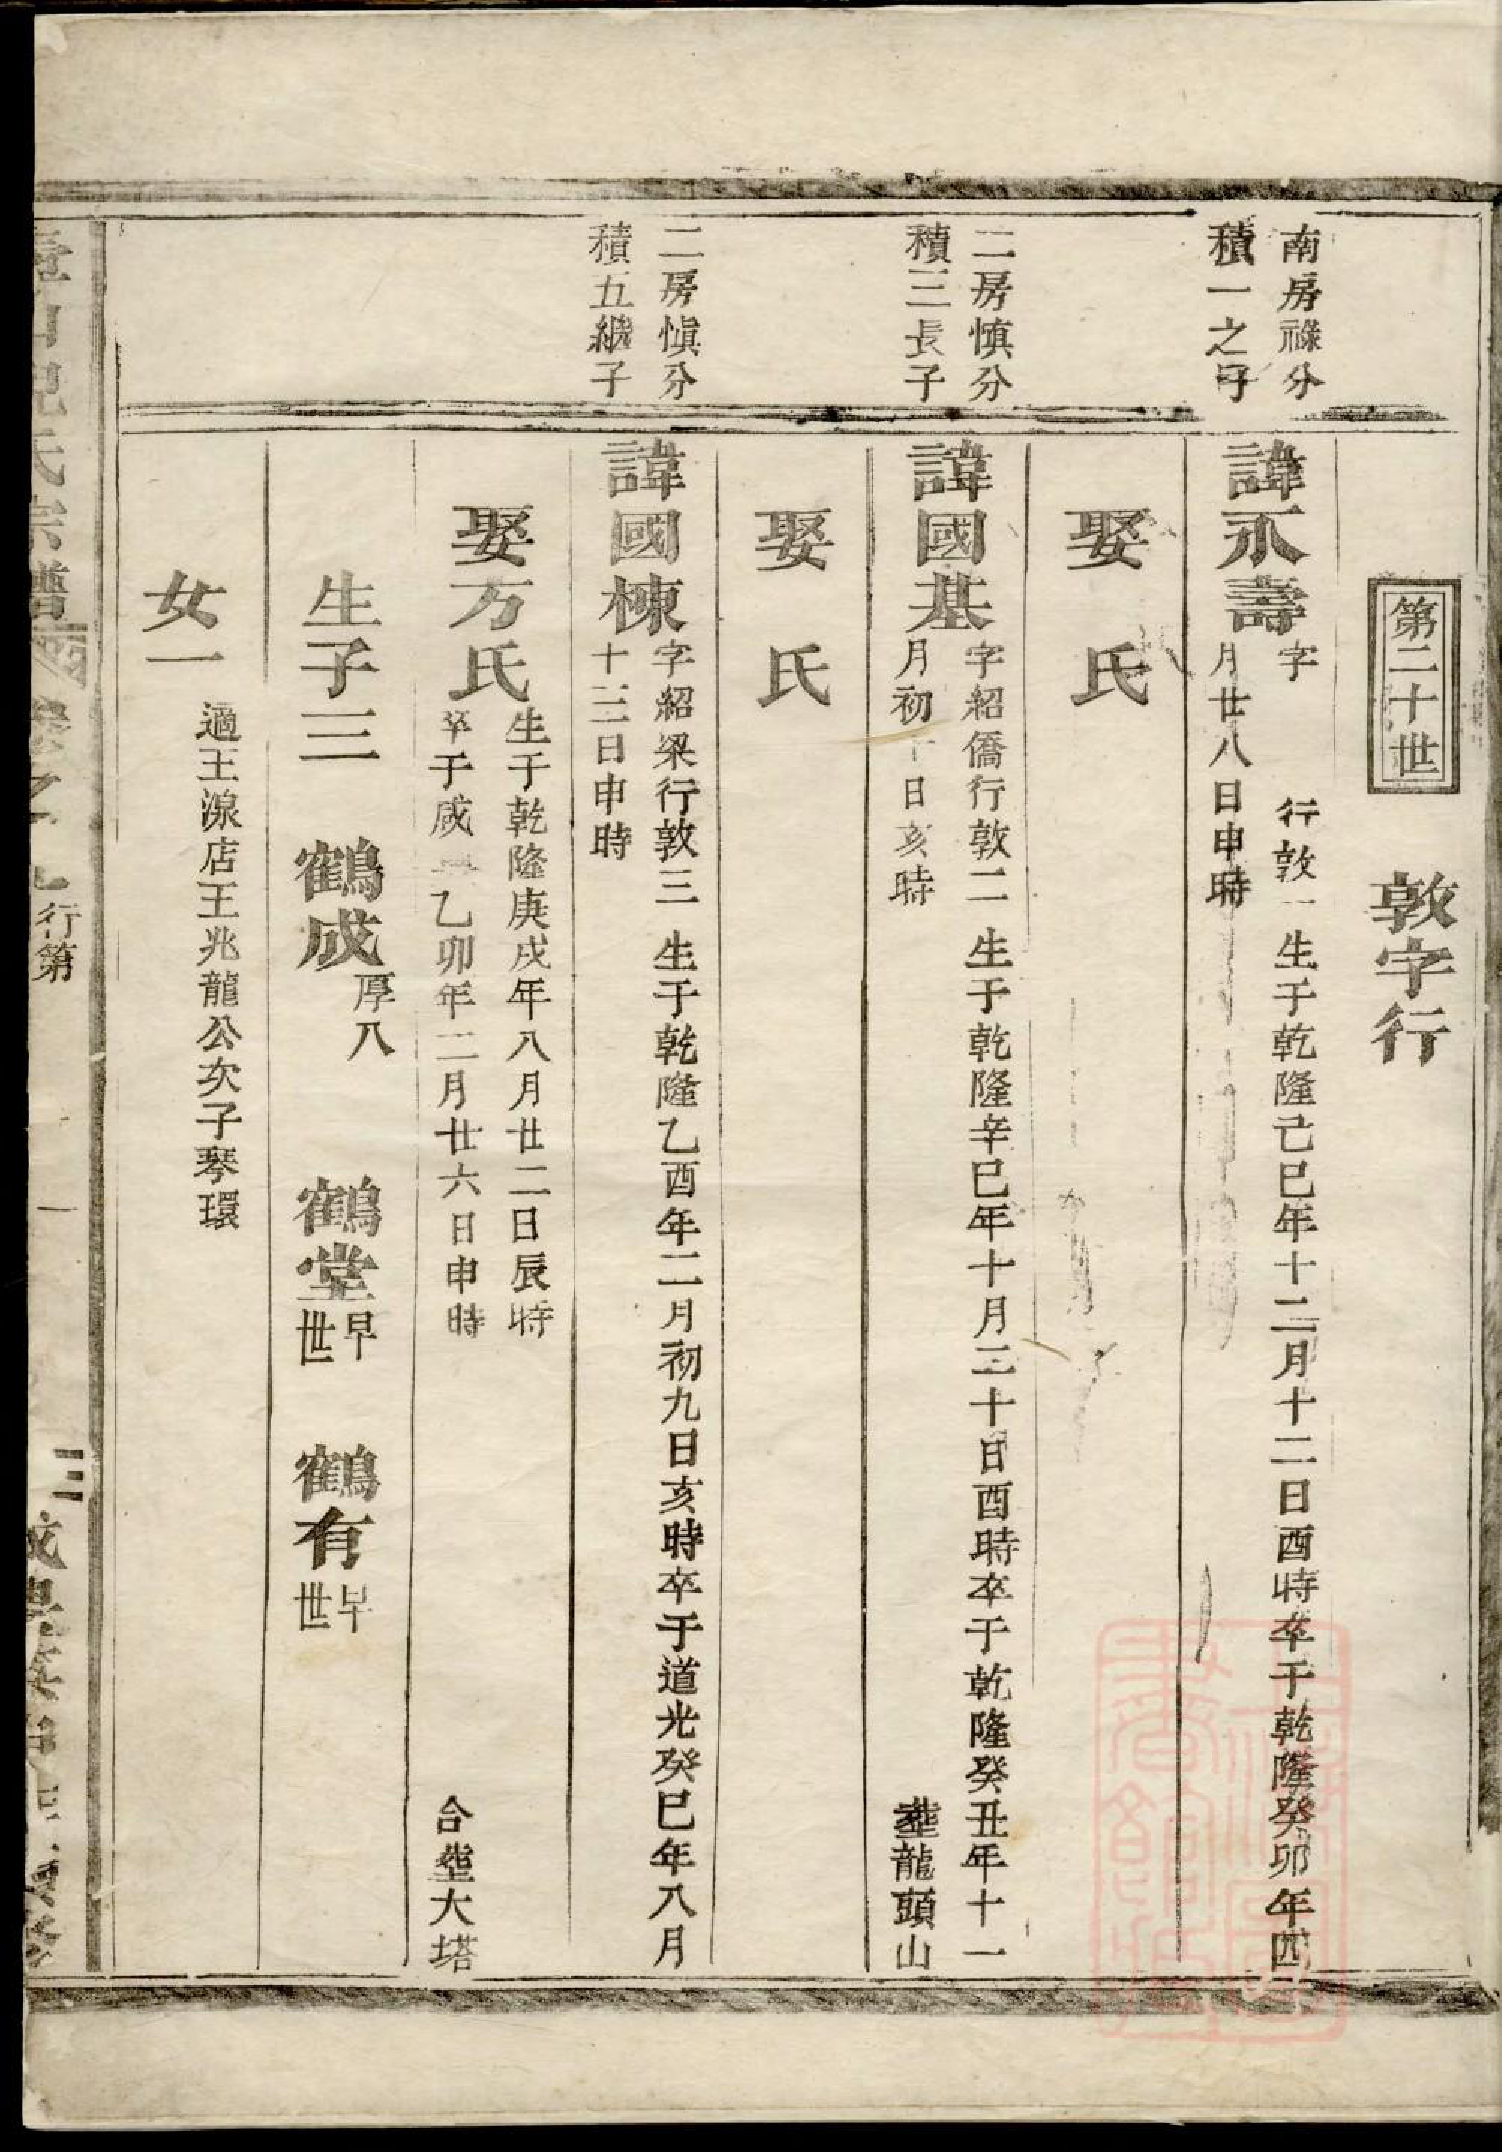 第二十世
敦字行
南房祿分
積一之子
諱永壽
字 行敦一 生于乾隆己巳年十二月十二日酉時卒于乾隆癸卯年四
月廿八日申時
娶 氏
二房慎分
積三長子
諱國基
字紹僑行敦二 生于乾隆辛巳年十月二十日酉時卒于乾隆癸丑年十一
月初十日亥時 塟龍頭山
娶 氏
二房慎分
積五繼子
諱國棟
字紹梁行敦三 生于乾隆乙酉年二月初九日亥時卒于道光癸巳年八月
十三日申時
娶万氏
生于乾隆庚戌年八月廿二日辰時
卒于咸豐乙卯年二月廿六日申時 合塟大塔
生子三 鶴成 厚八 鶴堂 早世 鶴有 早世
女一
適王湶店王兆龍公次子琴環
氏宗譜
行第
三